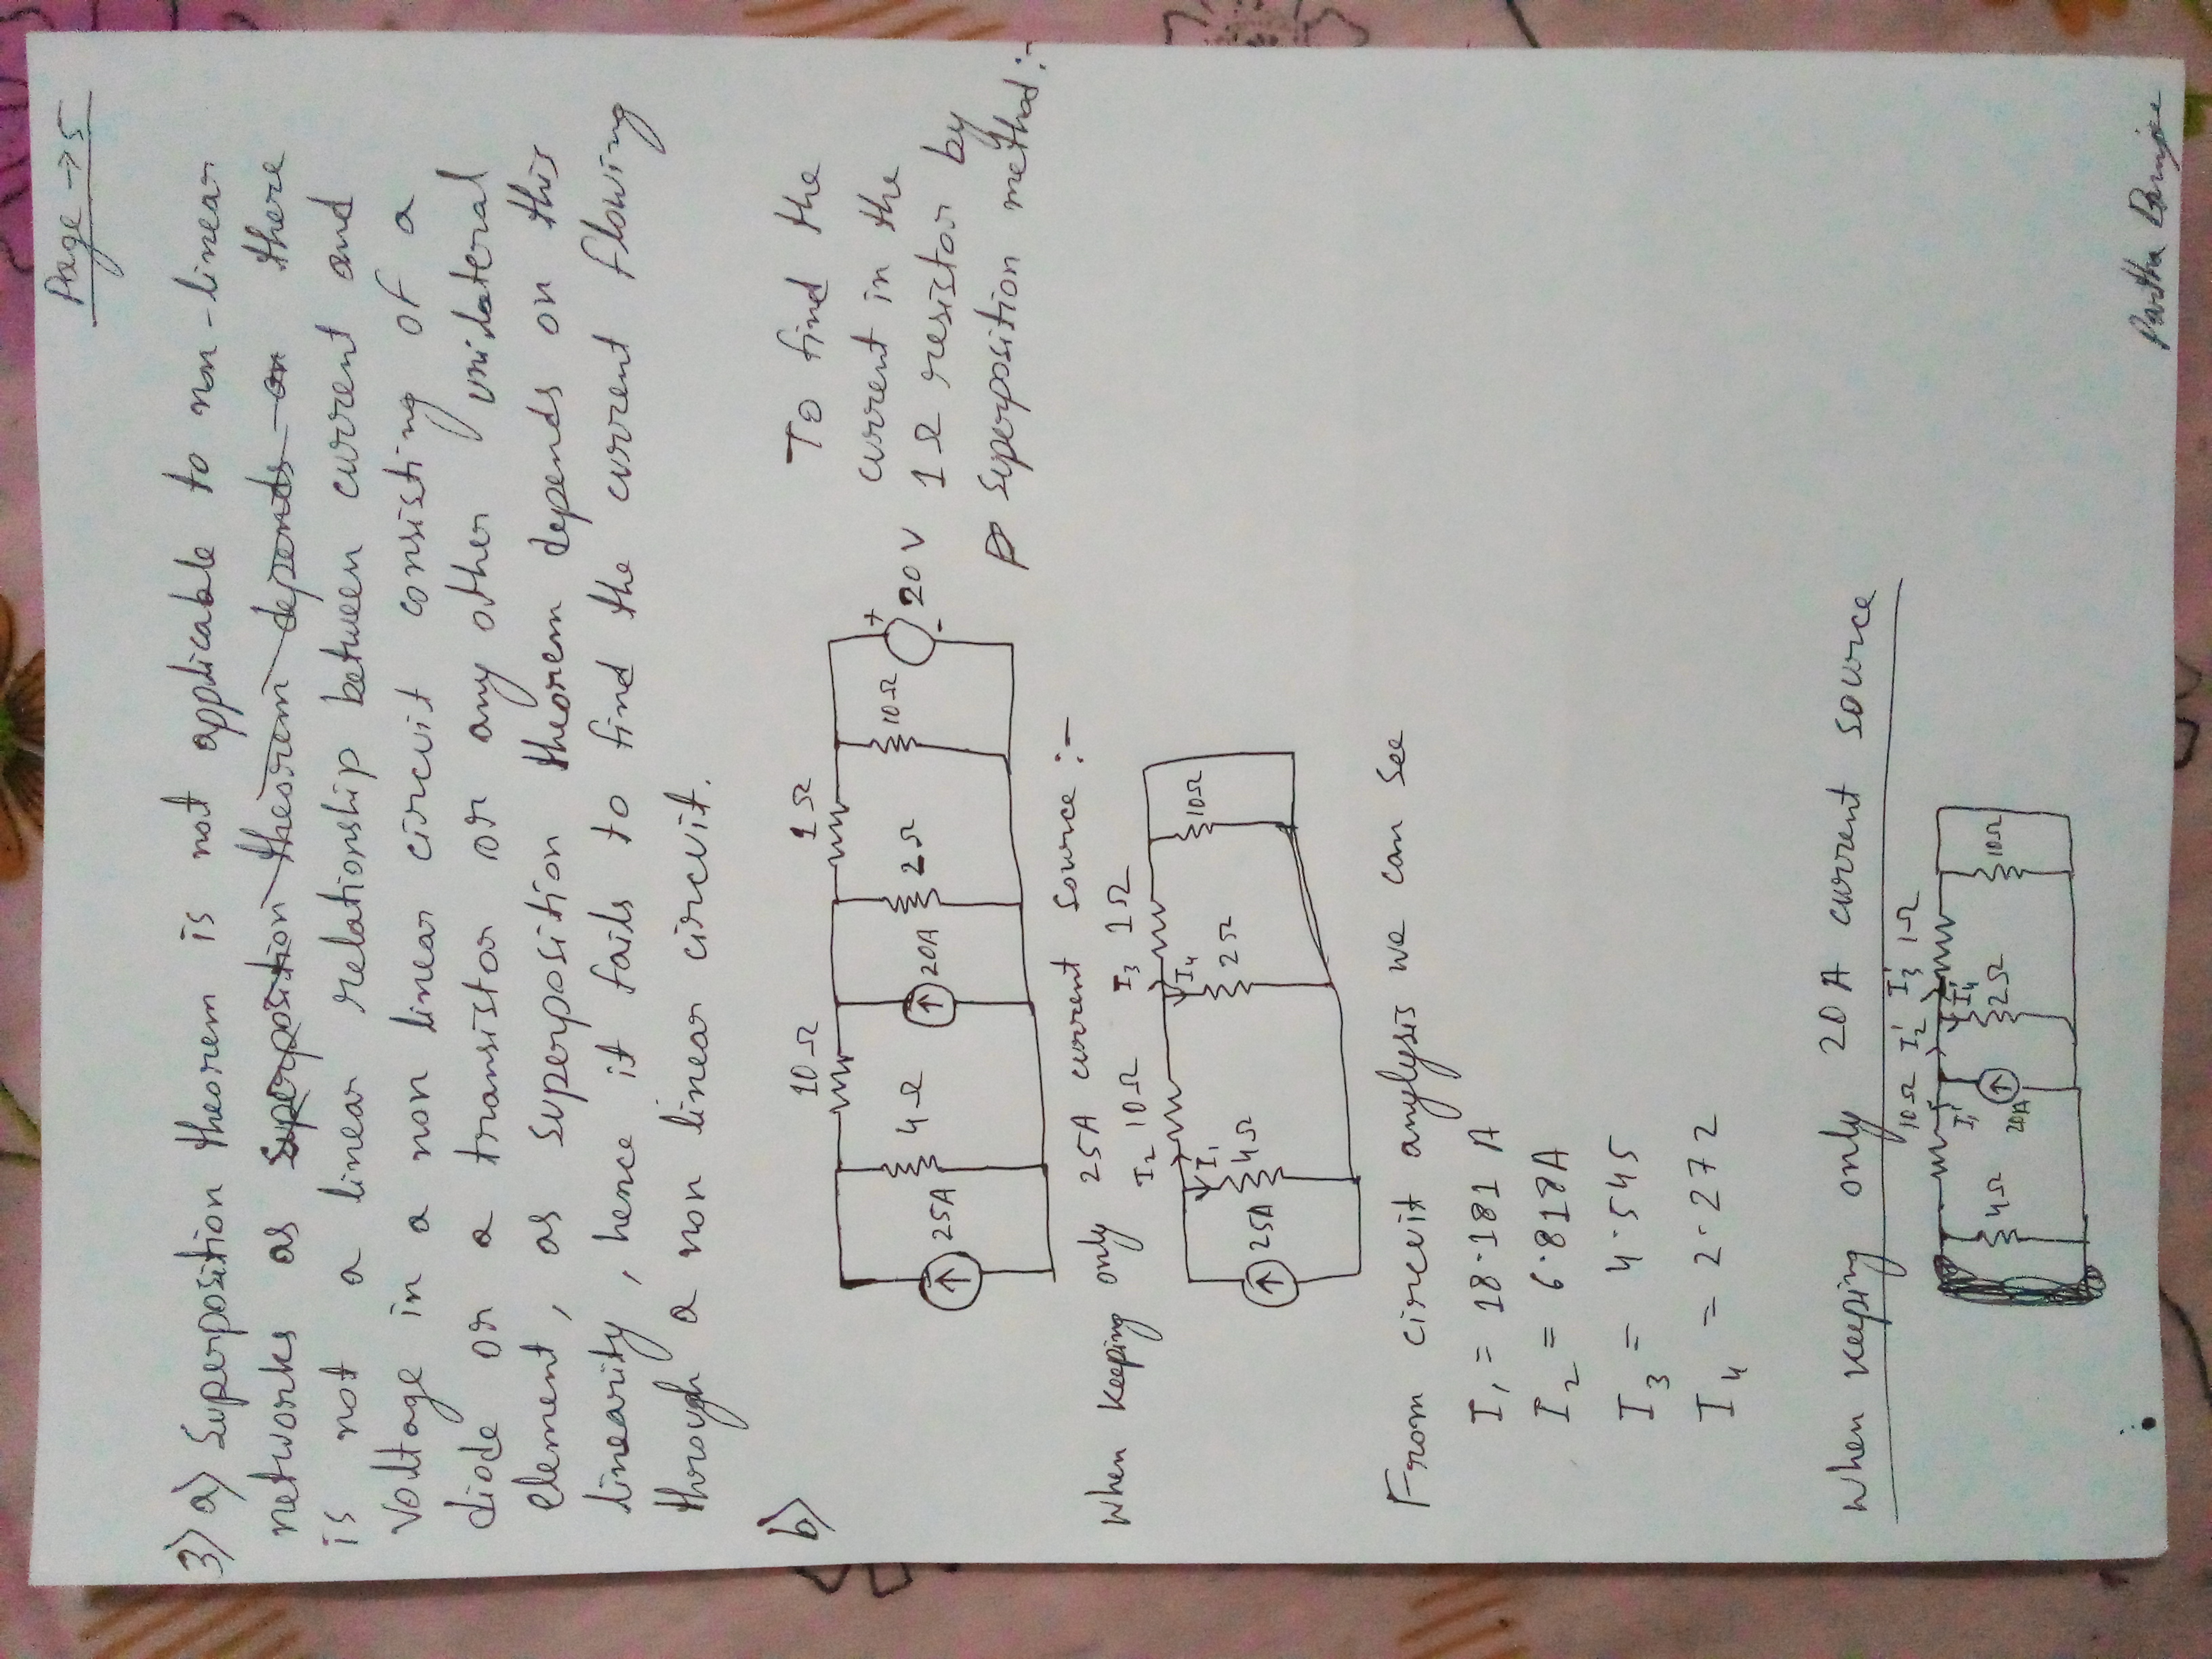 Page → 5
3) a) Superposition theorem is not applicable to non-linear
networks as Superposition theorem depends on there
is not a linear relationship between current and
voltage in a non linear circuit consisting of a
diode or a transistor or any other unilateral
element, as superposition theorem depends on this
linearity, hence it fails to find the current flowing
through a non linear circuit.
b)
10Ω 1Ω
25A 4Ω 20A 2Ω 10Ω + 20V -
To find the
current in the
1Ω resistor by
superposition method:-
When keeping only 25A current source :-
I2 10Ω I3 1Ω
I1 I4
25A 4Ω 2Ω 10Ω
From circuit anylysis we can see
I1 = 18.181 A
I2 = 6.818A
I3 = 4.545
I4 = 2.272
When keeping only 20A current source
10Ω I2' I3' 1Ω
I1' I4'
4Ω 20A 2Ω 10Ω
Partha